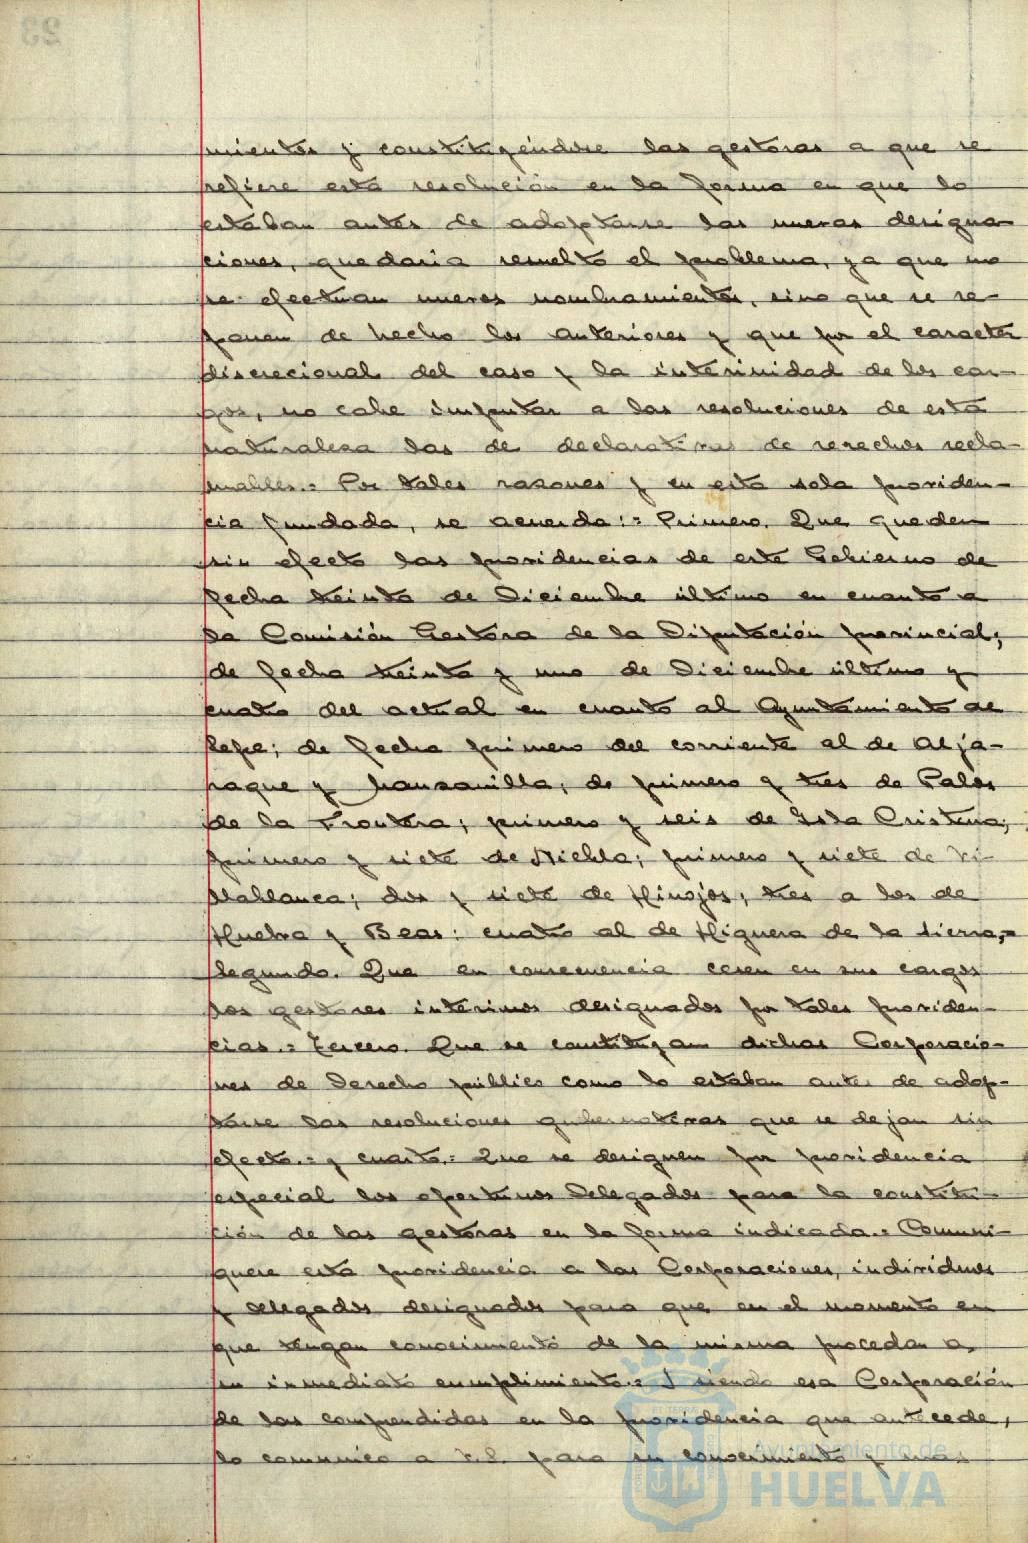 mientos y constituyéndose las gestoras a que se
refiere esta resolución en la forma en que lo
estaban antes de adoptarse las nuevas designa-
ciones, quedaria resuelto el problema, ya que no
se efectuan nuevos nombramientos, sino que se re-
ponen de hecho los anteriores y que por el caracter
discrecional del caso y la interinidad de los car-
gos, no cabe imputar a las resoluciones de esta
naturaleza las de declarativas de derechos recla-
mables.= Por tales razones y en esta sola providen-
cia fundada, se acuerda:= Primero. Que queden
sin efecto las providencias de este Gobierno de
fecha treinta de Diciembre último en cuanto a
la Comisión Gestora de la Diputación provincial;
de fecha treinta y uno de Diciembre último y
cuatro del actual en cuanto al Ayuntamiento de
Lepe; de fecha primero del corriente al de Alja-
raque y Manzanilla; de primero y tres de Palos
de la Frontera; primero y seis de Isla Cristina;
primero y siete de Niebla; primero y siete de Vi-
llablanca; dos y siete de Hinojos; tres a los de
Huelva y Beas: cuatro al de Higuera de la Sierra,=
Segundo. Que en consecuencia cesen en sus cargos
los gestores interinos designados por tales providen-
cias.= Tercero. Que se constituyan dichas Corporacio-
nes de Derecho público como lo estaban antes de adop-
tarse las resoluciones gubernativas que se dejan sin
efecto.= y cuarto.= Que se designen por providencia
especial los oportunos Delegados para la constitu-
ción de las gestoras en la forma indicada.= Comuni-
quese esta providencia a las Corporaciones, individuos
y delegados designados para que en el momento en
que tengan conocimiento de la misma procedan a
su inmediato cumplimiento.= Y siendo esa Corporación
de las comprendidas en la providencia que antecede,
lo comunico a V.S. para su conocimiento y mas
Ayuntamiento de
HUELVA